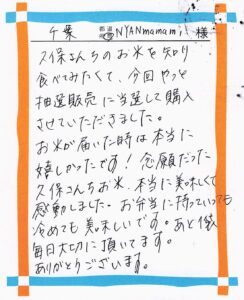 千葉 都道府県 NYANmamami 様
久保さんちのお米を知り
食べてみたくて、今回やっと
抽選販売に当選して購入
させていただきました。
お米が届いた時は本当に
嬉しかったです!念願だった
久保さんちお米、本当に美味しくて
感動しました。お弁当に持っていっても
冷めても美味しいです。あと僅
毎日大切に頂いてます。
ありがとうございます。